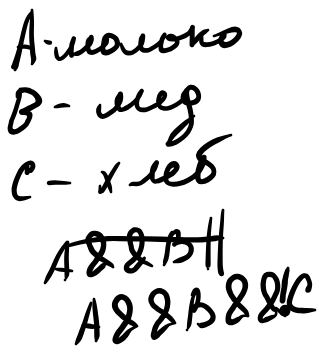 A - молоко
B - мед
C - хлеб
A && B ||
A && B && !C